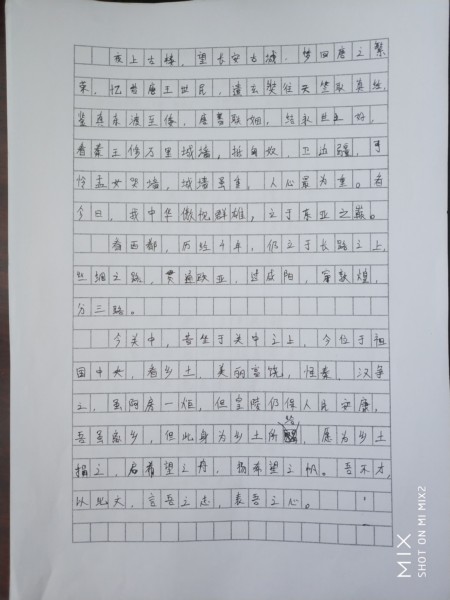 夜上古楼，望长安古城，梦回唐之繁
荣，忆昔唐王世民，遣玄奘往天竺取真经，
鉴真东渡至倭，唐蕃联姻，结永世之好，
看秦王修万里城墙，拒匈奴，卫边疆，可
怜孟女哭墙，城墙虽坚，人心最为重。看
今日，我中华傲视群雄，立于东亚之巅。
看西都，历经千年，仍立于长路之上，
丝绸之路，贯通欧亚，过咸阳，穿敦煌，
分三路。
今关中，吾坐于关中之上，今位于祖
国中央，看乡土，美丽富饶，怪秦，汉争
之，虽阿房一炬，但皇陵仍保人民安康，
吾虽离乡，但此身为乡土所给，愿为乡土
捐之，启希望之舟，扬希望之帆。吾不才，
以此文，言吾之志，表吾之心。
MIX
SHOT ON MI MIX2